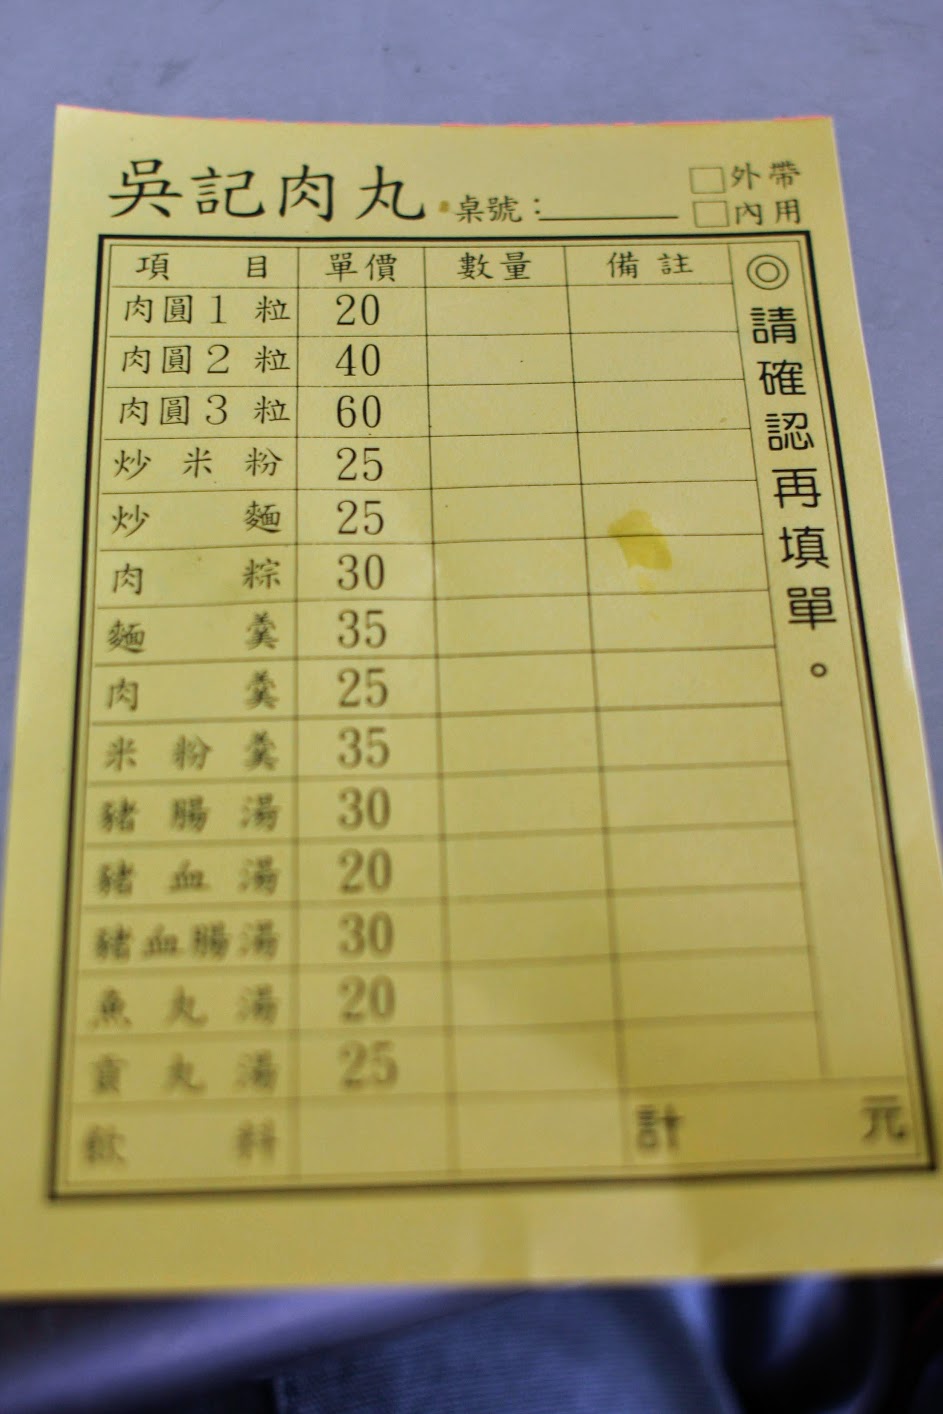 吳記肉丸
桌號：
□外帶
□內用
項目 單價 數量 備註
肉圓1粒 20
肉圓2粒 40
肉圓3粒 60
炒米粉 25
炒麵 25
肉粽 30
麵羹 35
肉羹 25
米粉羹 35
豬腸湯 30
豬血湯 20
豬血腸湯 30
魚丸湯 20
貢丸湯 25
飲料
計 元
◎請確認再填單。